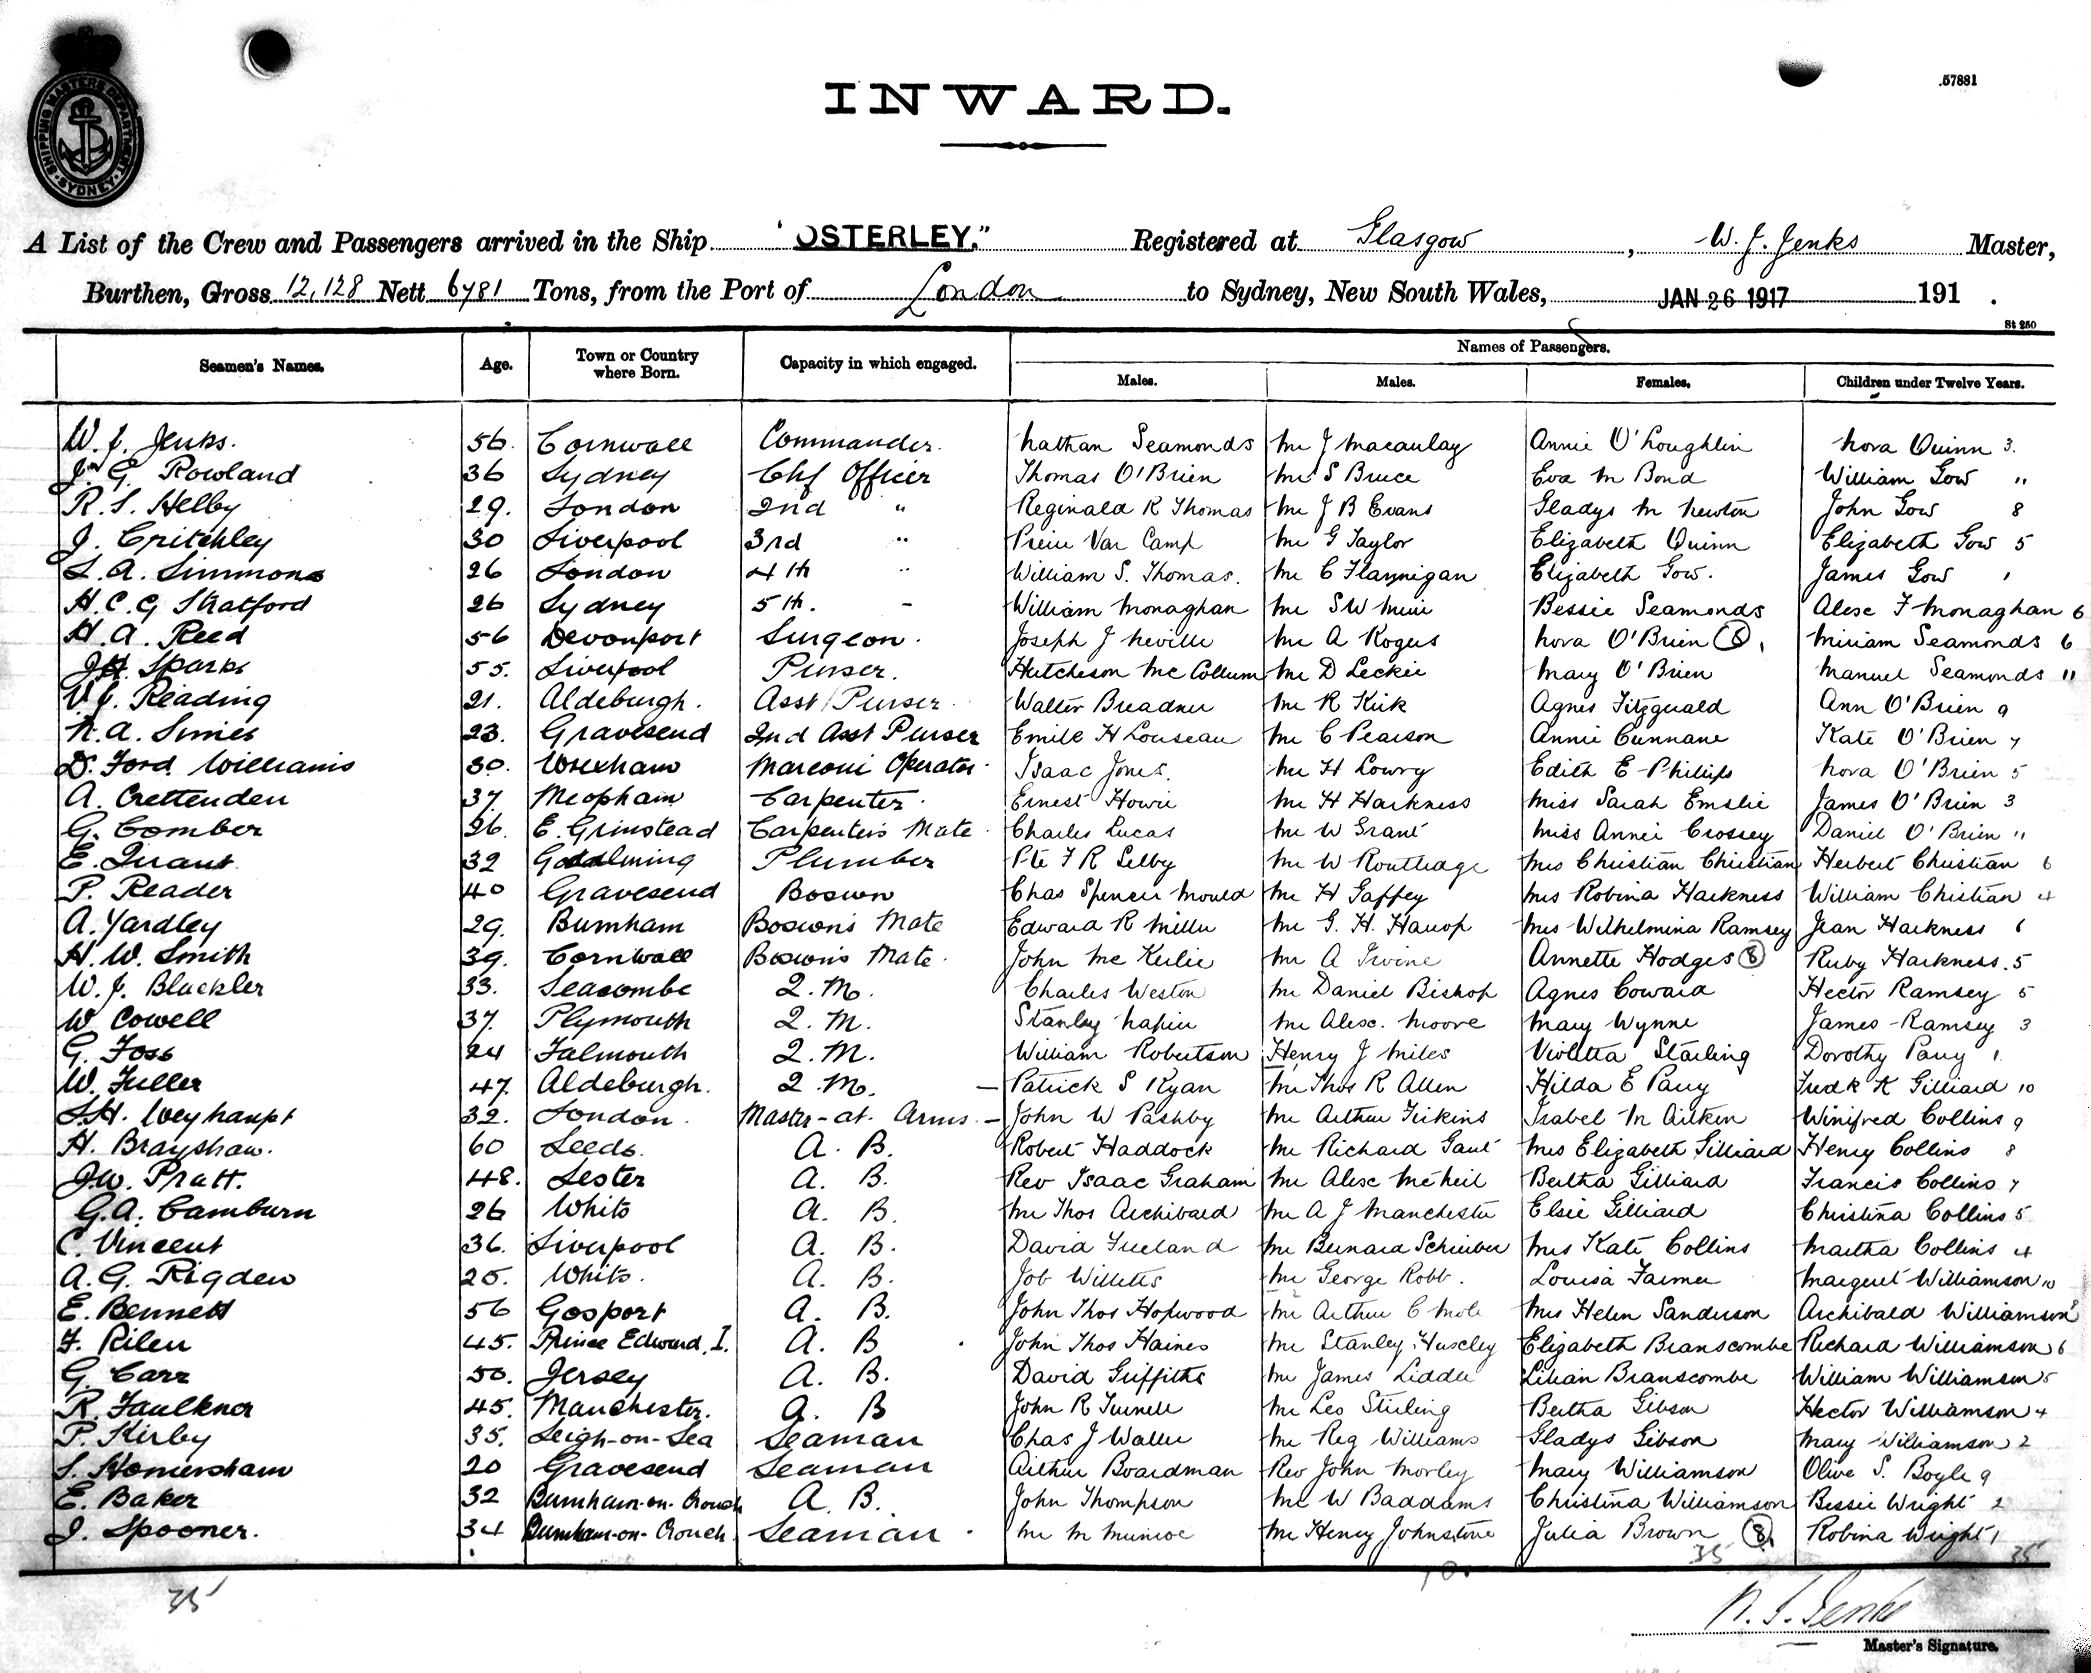 SHIPPING MASTERS DEPARTMENT
SYDNEY
.57881
INWARD.
A List of the Crew and Passengers arrived in the Ship "OSTERLEY." Registered at Glasgow, W. J. Jenks Master,
Burthen, Gross 12,128 Nett 6781 Tons, from the Port of London to Sydney, New South Wales, JAN 26 1917 191 .
St 250
Seamen's Names. Age. Town or Country where Born. Capacity in which engaged. Names of Passengers.
Males. Males. Females. Children under Twelve Years.
W. J. Jenks. 56. Cornwall Commander. Nathan Seamonds Mr J Macaulay Annie O'Loughlin Nora Quinn 3.
J. G. Rowland 36 Sydney Chf Officer Thomas O'Brien Mr S Bruce Eva M Bond William Gow "
R. S. Helby 29. London 2nd " Reginald R Thomas Mr J B Evans Gladys M Newton John Gow 8
J. Critchley 30 Liverpool 3rd " Van Camp Mr G Taylor Elizabeth Quinn Elizabeth Gow 5
L. A. Simmons 26 London 4th " William S. Thomas. Mr C Flannigan Elizabeth Gow. James Gow 1
H. C. G Stratford 26 Sydney 5th. " William Monaghan Mr S W Bessie Seamonds Alex F Monaghan 6
H. A. Reed 56 Devonport Surgeon. Joseph J Neville Mr A Rogers Nora O'Brien (8) Miriam Seamonds 6
J. H. Sparks 55. Liverpool Purser. Hutcheson McCollum Mr D Leckie Mary O'Brien Manuel Seamonds "
V. J. Reading 21. Aldeburgh. Asst/Purser. Walter Breadner Mr R Kirk Agnes Fitzgerald Ann O'Brien 9
N. A. Simes 23. Gravesend 2nd Asst Purser Emile H Louseau Mr C Pearson Annie Cunnane Kate O'Brien 7
D. Ford Williams 30. Wrexham Marconi Operator. Isaac Jones. Mr H Lowry Edith E Phillips Nora O'Brien 5
A. Crettenden 37. Meopham Carpenter. Ernest Howie Mr H Harkness Miss Sarah Emslie James O'Brien 3
G. Comber 26. E. Grinstead Carpenter's Mate. Charles Lucas Mr W Grant Miss Annie Crossey Daniel O'Brien "
E. Quant 32 Godalming Plumber Pte F R Selby Mr W Routledge Mrs Christian Christian Herbert Christian 6
P. Reader 40 Gravesend Bosun Chas Spencer Mould Mr H Gaffey Mrs Robina Harkness William Christian 4
A. Yardley 29. Burnham Bosun's Mate Edward R Miller Mr G. H. Harrop Mrs Wilhelmina Ramsey Jean Harkness 6
H. W. Smith 39. Cornwall Bosun's Mate. John McKerlie Mr A Irvine Annette Hodges (8) Ruby Harkness. 5
W. J. Blackler 33. Seacombe Q. M. Charles Weston Mr Daniel Bishop Agnes Coward Hector Ramsey 5
W Cowell 37. Plymouth Q. M. Stanley Napier Mr Alex. Moore Mary Wynne James Ramsey 3
G. Foss 24 Falmouth Q. M. William Robertson Henry J Miles Violetta Starling Dorothy Parry 1
W. Fuller 47. Aldeburgh. Q. M. Patrick S Ryan Mr Thos R Allen Hilda E Parry Fredk K Gilliard 10
S. H. Weyhaupt 32. London. Master-at-Arms. John W Pashby Mr Arthur Firkins Isabel M Aitken Winifred Collins 9
H. Brayshaw. 60 Leeds. A. B. Robert Haddock Mr Richard Gant Mrs Elizabeth Gilliard Henry Collins 8
J. W. Pratt. 48. Lester A. B. Rev Isaac Graham Mr Alex McNeil Bertha Gilliard Francis Collins 7
G. A. Camburn 26 Whits A. B. Mr Thos Archibald Mr A J Manchester Elsie Gilliard Christina Collins 5
C. Vincent 36. Liverpool A. B. David Freeland Mr Bernard Schrieber Mrs Kate Collins Martha Collins 4
A. G. Rigden 25. Whits. A. B. Job Willetts Mr George Robb. Louisa Farmer Margeret Williamson 10
E. Bennett 56 Gosport A. B. John Thos Hopwood Mr Arthur C Mole Mrs Helen Sanderson Archibald Williamson 8
F. Rilen 45. Prince Edward. I. A. B John Thos Haines Mr Stanley Huxley Elizabeth Branscombe Richard Williamson 6
G. Carr 50. Jersey A. B. David Griffiths Mr James Liddle Lilian Branscombe William Williamson 5
R. Faulkner 45. Manchester. A. B John R Turnell Mr Leo Stirling Bertha Gibson Hector Williamson 4
P. Kirby 35. Leigh-on-Sea Seaman Chas J Waller Mr Reg Williams Gladys Gibson Mary Williamson 2
S. Homersham 20 Gravesend Seaman Arthur Boardman Rev John Morley Mary Williamson Olive S. Boyle 9
E. Baker 32 Burnham-on-Crouch A. B. John Thompson Mr W Baddams Christina Williamson Bessie Wright 2
J. Spooner. 34 Burnham-on-Crouch. Seaman. Mr M Munroe Mr Henry Johnstone Julia Brown (8) Robina Wright 1
35 35
35 70.
W. J. Jenks
Master's Signature.